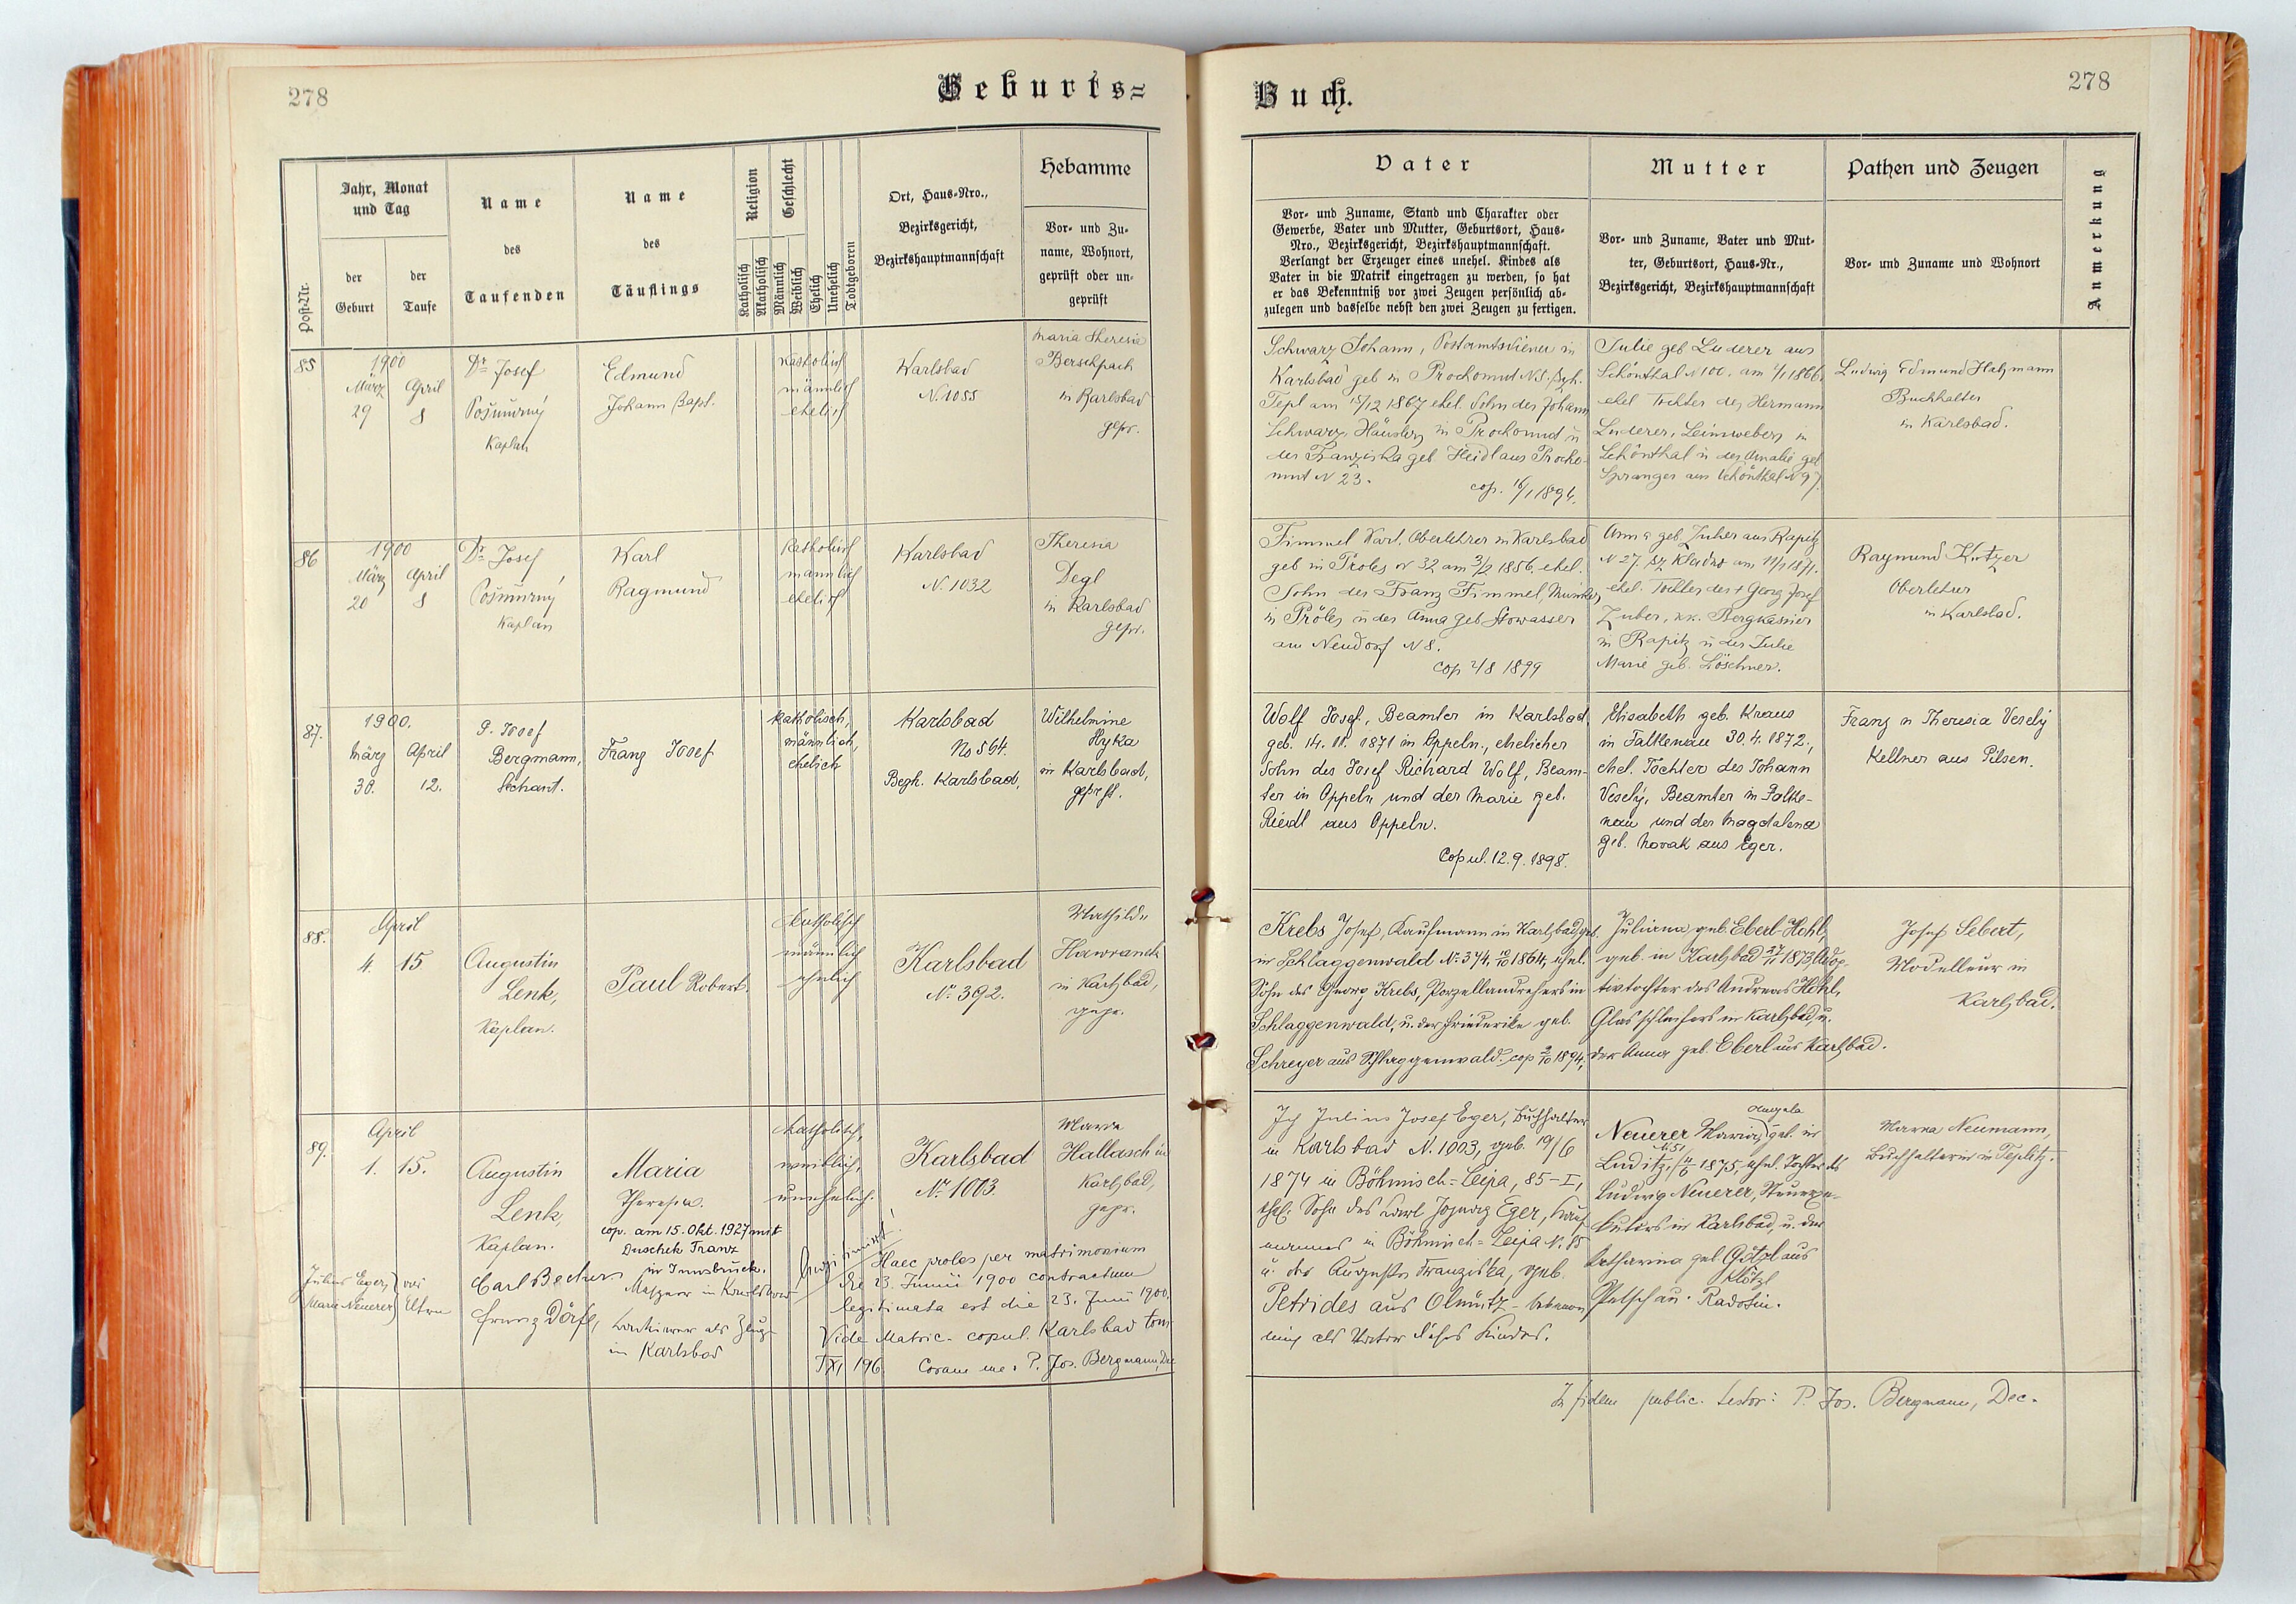 278
Geburts=
Post-Nr.
Jahr, Monat
und Tag
der
Geburt
der
Taufe
Name
des
Taufenden
Name
des
Täuflings
Religion
Katholisch
Akatholisch
Geschlecht
Männlich
Weiblich
Ehelich
Unehelich
Todtgeboren
Ort, Haus-Nro.,
Bezirksgericht,
Bezirkshauptmannschaft
Hebamme
Vor- und Zu-
name, Wohnort,
geprüft oder un-
geprüft
85
1900
März
29
April
8
Dr. Josef
Pošmurný
Kaplan
Edmund
Johann Bapt.
katholisch
männlich
ehelich
Karlsbad
N. 1055
Maria Theresia
Berschpach
in Karlsbad
gepr.
86
1900
März
20
April
8
Dr. Josef
Pošmurný
Kaplan
Karl
Raymund
katholisch
männlich
ehelich
Karlsbad
N. 1032
Theresia
Degl
in Karlsbad
gepr.
87.
1900.
März
30.
April
12.
P. Josef
Bergmann,
Dechant.
Franz Josef
katholisch,
männlich,
ehelich
Karlsbad
No 564.
Begh. Karlsbad,
Wilhelmine
Hyka
in Karlsbad,
geprft.
88.
April
4. 15
Augustin
Lenk,
Kaplan.
Paul Robert.
katholisch
männlich
ehelich
Karlsbad
No. 392.
Mathilde
Hawranek
in Karlsbad,
gepr.
89.
April
1. 15.
Augustin
Lenk,
Kaplan.
Maria
Theresia.
cop. am 15. Okt. 1927 mit
Duschek Franz
in Innsbruck.
katholisch,
weiblich,
unehelich.
Karlsbad
No. 1003.
Maria
Hallasch in
Karlsbad,
gepr.
Julius Eger,
Marie Neuerer
als
Eltern
Carl Becher
in Karlsbad
Franz Dörfl,
als Zeuge
in Karlsbad
Haec proles per matrimonium
die 23. Junii 1900 contractum
legitimata est die 23. Juni 1900.
Vide Matric. copul. Karlsbad tom
196. Coram me: P. Jos. Bergmann, Dec
Buch.
278
Vater
Vor- und Zuname, Stand und Charakter oder
Gewerbe, Vater und Mutter, Geburtsort, Haus-
Nro., Bezirksgericht, Bezirkshauptmannschaft.
Verlangt der Erzeuger eines unehel. Kindes als
Vater in die Matrik eingetragen zu werden, so hat
er das Bekenntniß vor zwei Zeugen persönlich ab-
zulegen und dasselbe nebst den zwei Zeugen zu fertigen.
Mutter
Vor- und Zuname, Vater und Mut-
ter, Geburtsort, Haus-Nr.,
Bezirksgericht, Bezirkshauptmannschaft
Pathen und Zeugen
Vor- und Zuname und Wohnort
Anmerkung
Schwarz Johann, Postamtsdiener in
Karlsbad geb in Prochomut N 5. Bzh.
Tepl am 15/12 1867 ehel. Sohn des Johann
Schwarz, Häusler in Prochomut u
der Franziska geb. Heidl aus Procho-
mut N 23.
cop. 16/1 1894.
Julie geb Luderer aus
Schönthal N 100. am 4/1 1866.
ehel Tochter des Hermann
Luderer, Leinweber in
Schönthal u der Amalie geb
Spranger aus Schönthal N 97.
Ludwig Edmund Holzmann
Buchhalter
in Karlsbad.
Fimmel Karl, Oberlehrer in Karlsbad
geb in Pröles N 32 am 3/2 1856. ehel.
Sohn des Franz Fimmel, Musiker
in Pröles u der Anna geb Stowasser
aus Neudorf N 8.
cop 2/8 1899
Anna geb. Zuber aus Rapitz
N 27. Bz Kladno am 11/1 1871.
ehel. Tochter des † Georg Josef
Zuber, kk. Bergkassier
in Rapitz u der Julie
Marie geb. Löschner.
Raymund Kutzer
Oberlehrer
in Karlsbad.
Wolf Josef, Beamter in Karlsbad
geb. 14. 11. 1871 in Oppeln., ehelicher
Sohn des Josef Richard Wolf, Beam-
ter in Oppeln und der Marie geb.
Riedl aus Oppeln.
Copul. 12. 9. 1898.
Elisabeth geb. Kraus
in Falkenau 30. 4. 1872.,
ehel. Tochter des Johann
Veselý, Beamter in Falke-
nau und der Magdalena
geb. Novak aus Eger.
Franz u Theresia Veselý
Kellner aus Pilsen.
Krebs Josef, Kaufmann in Karlsbad, geb.
in Schlaggenwald No. 374, 1864, ehel.
Sohn des Georg Krebs, Porzellandrehers in
Schlaggenwald, u. der Friederike geb.
Schreyer aus Schlaggenwald. cop 9/10 1894,
Juliana, geb. Eberl-Hohl,
geb. in Karlsbad 27/11 1873, Adop-
tivtochter des Andreas Hohl,
Glasschleifers in Karlsbad, u.
der Anna geb. Eberl aus Karlsbad.
Josef Sebert,
Modelleur in
Karlsbad.
Ich Julius Josef Eger, Buchhalter
in Karlsbad N. 1003, geb. 19/6
1874 in Böhmisch-Leipa, 85-I,
ehel. Sohn des Karl Eger, Kauf-
mannes in Böhmisch-Leipa N. 85
u. der Auguste Franziska, geb.
Petrides aus Olmütz - bekenne
mich als Vater dieses Kindes.
Angela
Neuerer Maria, geb. in
N. 51
Luditz, 1875, ehel. Tochter des
Ludwig Neuerer, Steuerexe-
kutors in Karlsbad, u. der
Katharina geb. Götzl aus
Klötzl
Petschau. Radotin.
Maria Neumann,
Buchhalterin in Teplitz.
In fidem public. testor: P. Jos. Bergmann, Dec.